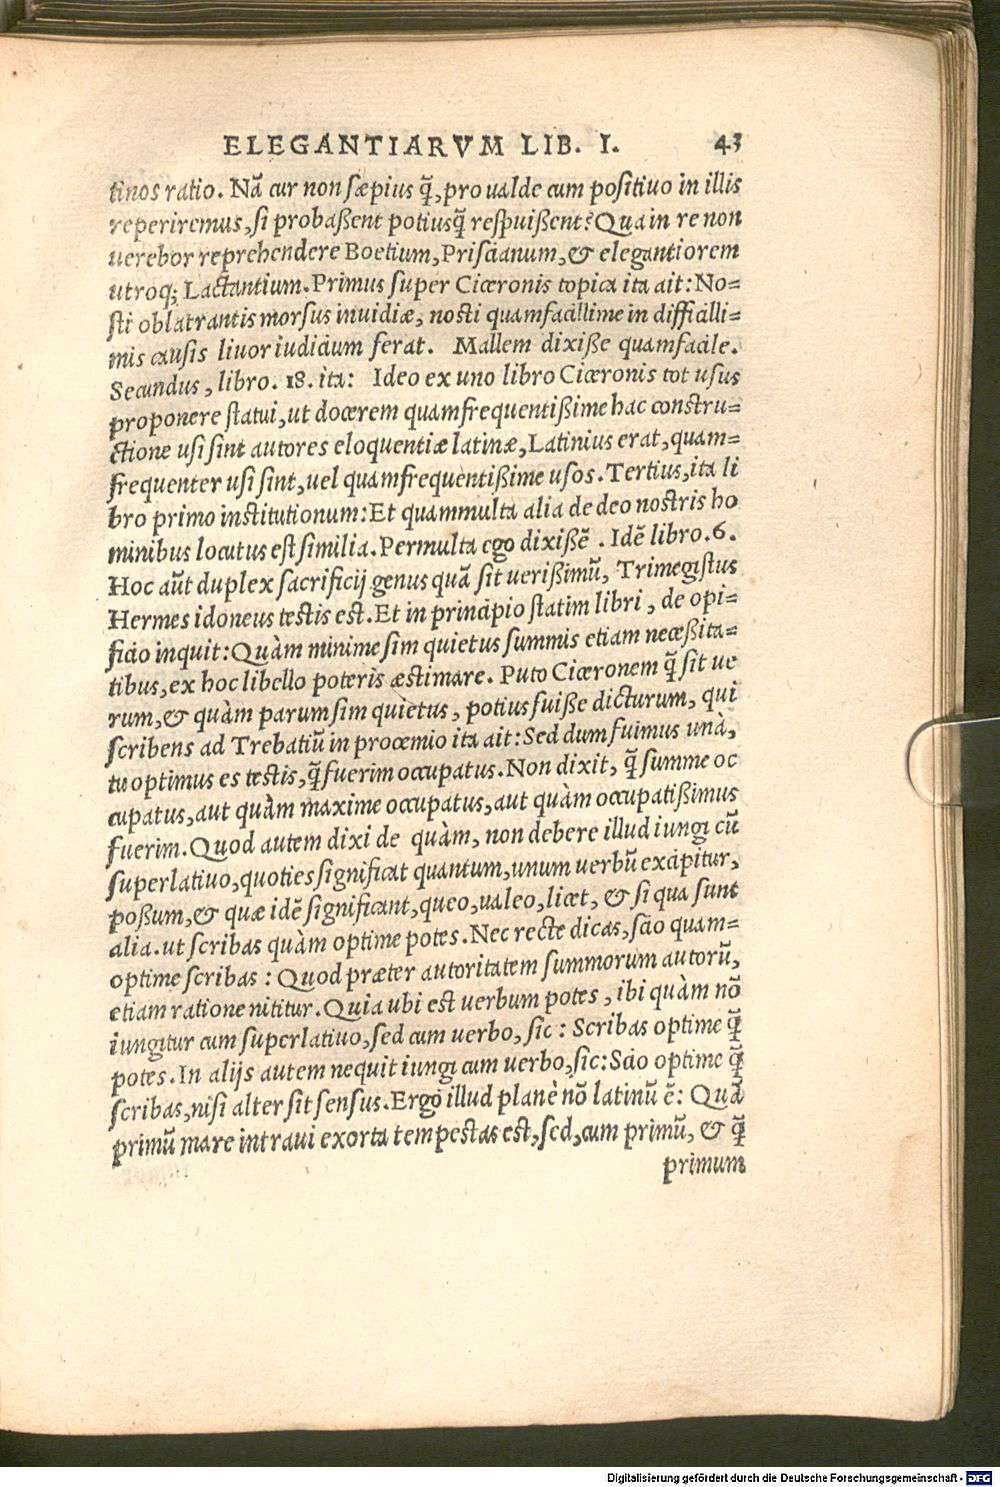 ELEGANTIARVM LIB. I. 43
tinos ratio. Nā cur non sæpius q̃, pro ualde cum positiuo in illis
reperiremus, si probaßent potiusq̃ respuißent? Qua in re non
uerebor reprehendere Boetium, Priscianum, & elegantiorem
utroq; Lactantium. Primus super Ciceronis topica ita ait: No=
sti oblatrantis morsus inuidiæ, nosti quamfacillime in difficilli=
mis causis liuor iudicium ferat. Mallem dixiße quamfacile.
Secundus, libro. 18. ita: Ideo ex uno libro Ciceronis tot usus
proponere statui, ut docerem quamfrequentißime hac constru=
ctione usi sint autores eloquentiæ latinæ, Latinius erat, quam=
frequenter usi sint, uel quamfrequentißime usos. Tertius, ita li
bro primo institutionum: Et quammulta alia de deo nostris ho
minibus locutus est similia. Permulta ego dixißē. Idē libro. 6.
Hoc aūt duplex sacrificij genus quā sit uerißimū, Trimegistus
Hermes idoneus testis est. Et in principio statim libri, de opi=
ficio inquit: Quàm minime sim quietus summis etiam neceßita=
tibus, ex hoc libello poteris æstimare. Puto Ciceronem q̃ sit ue
rum, & quàm parum sim quietus, potius fuiße dicturum, qui
scribens ad Trebatiū in proœmio ita ait: Sed dum fuimus unà,
tu optimus es testis, q̃ fuerim occupatus. Non dixit, q̃ summe oc
cupatus, aut quàm maxime occupatus, aut quàm occupatißimus
fuerim. Quod autem dixi de quàm, non debere illud iungi cū
superlatiuo, quoties significat quantum, unum uerbū excipitur,
poßum, & quæ idē significant, queo, ualeo, licet, & si qua sunt
alia. ut scribas quàm optime potes. Nec recte dicas, scio quam=
optime scribas: Quod præter autoritatem summorum autorū,
etiam ratione nititur. Quia ubi est uerbum potes, ibi quàm nō
iungitur cum superlatiuo, sed cum uerbo, sic: Scribas optime q̃
potes. In alijs autem nequit iungi cum uerbo, sic: Scio optime q̃
scribas, nisi alter sit sensus. Ergo illud planè nō latinū ē: Quā
primū mare intraui exorta tempestas est, sed, cum primū, & q̃
primum
Digitalisierung gefördert durch die Deutsche Forschungsgemeinschaft - DFG